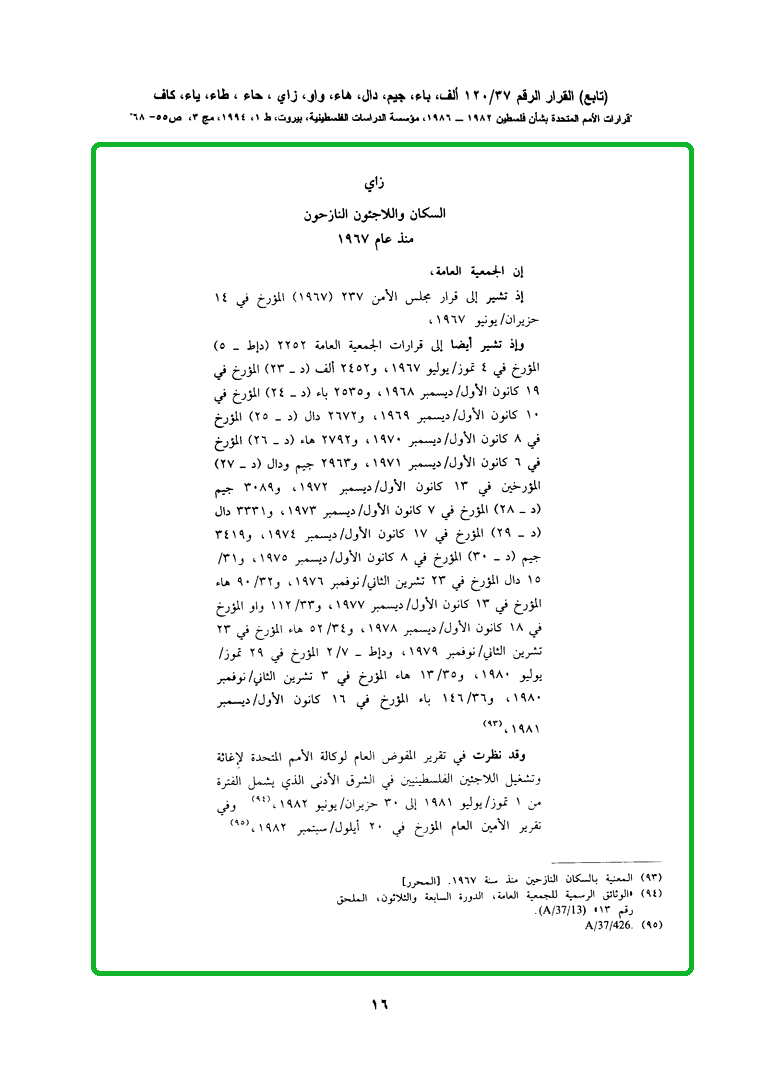 (تابع) القرار الرقم ١٢٠/٣٧ ألف، باء، جيم، دال، هاء، واو، زاي ، حاء ، طاء، ياء، كاف
"قرارات الأمم المتحدة بشأن فلسطين ١٩٨٢ ــ ١٩٨٦، مؤسسة الدراسات الفلسطينية، بيروت، ط ١، ١٩٩٤، مج ٣، ص٥٥- ٦٨"
زاي
السكان واللاجئون النازحون
منذ عام ١٩٦٧
إن الجمعية العامة،
إذ تشير إلى قرار مجلس الأمن ٢٣٧ (١٩٦٧) المؤرخ في ١٤
حزيران/يونيو ١٩٦٧،
وإذ تشير أيضا إلى قرارات الجمعية العامة ٢٢٥٢ (دإط ــ ٥)
المؤرخ في ٤ تموز/يوليو ١٩٦٧، و٢٤٥٢ ألف (د ــ ٢٣) المؤرخ في
١٩ كانون الأول/ديسمبر ١٩٦٨، و٢٥٣٥ باء (د ــ ٢٤) المؤرخ في
١٠ كانون الأول/ديسمبر ١٩٦٩، و٢٦٧٢ دال (د ــ ٢٥) المؤرخ
في ٨ كانون الأول/ديسمبر ١٩٧٠، و٢٧٩٢ هاء (د ــ ٢٦) المؤرخ
في ٦ كانون الأول/ديسمبر ١٩٧١، و٢٩٦٣ جيم ودال (د ــ ٢٧)
المؤرخين في ١٣ كانون الأول/ديسمبر ١٩٧٢، و٣٠٨٩ جيم
(د ــ ٢٨) المؤرخ في ٧ كانون الأول/ديسمبر ١٩٧٣، و٣٣٣١ دال
(د ــ ٢٩) المؤرخ في ١٧ كانون الأول/ديسمبر ١٩٧٤، و٣٤١٩
جيم (د ــ ٣٠) المؤرخ في ٨ كانون الأول/ديسمبر ١٩٧٥، و٣١/
١٥ دال المؤرخ في ٢٣ تشرين الثاني/نوفمبر ١٩٧٦، و٩٠/٣٢ هاء
المؤرخ في ١٣ كانون الأول/ديسمبر ١٩٧٧، و١١٢/٣٣ واو المؤرخ
في ١٨ كانون الأول/ديسمبر ١٩٧٨، و٥٢/٣٤ هاء المؤرخ في ٢٣
تشرين الثاني/نوفمبر ١٩٧٩، ودإط ــ ٢/٧ المؤرخ في ٢٩ تموز/
يوليو ١٩٨٠، و١٣/٣٥ هاء المؤرخ في ٣ تشرين الثاني/نوفمبر
١٩٨٠، و١٤٦/٣٦ باء المؤرخ في ١٦ كانون الأول/ديسمبر
١٩٨١،(٩٣)
وقد نظرت في تقرير المفوض العام لوكالة الأمم المتحدة لإغاثة
وتشغيل اللاجئين الفلسطينيين في الشرق الأدنى الذي يشمل الفترة
من ١ تموز/يوليو ١٩٨١ إلى ٣٠ حزيران/يونيو ١٩٨٢،(٩٤) وفي
تقرير الأمين العام المؤرخ في ٢٠ أيلول/سبتمبر ١٩٨٢،(٩٥)
(٩٣) المعنية بالسكان النازحين منذ سنة ١٩٦٧. [المحرر]
(٩٤) «الوثائق الرسمية للجمعية العامة، الدورة السابعة والثلاثون، الملحق
رقم ١٣» (A/37/13).
(٩٥) A/37/426.
١٦